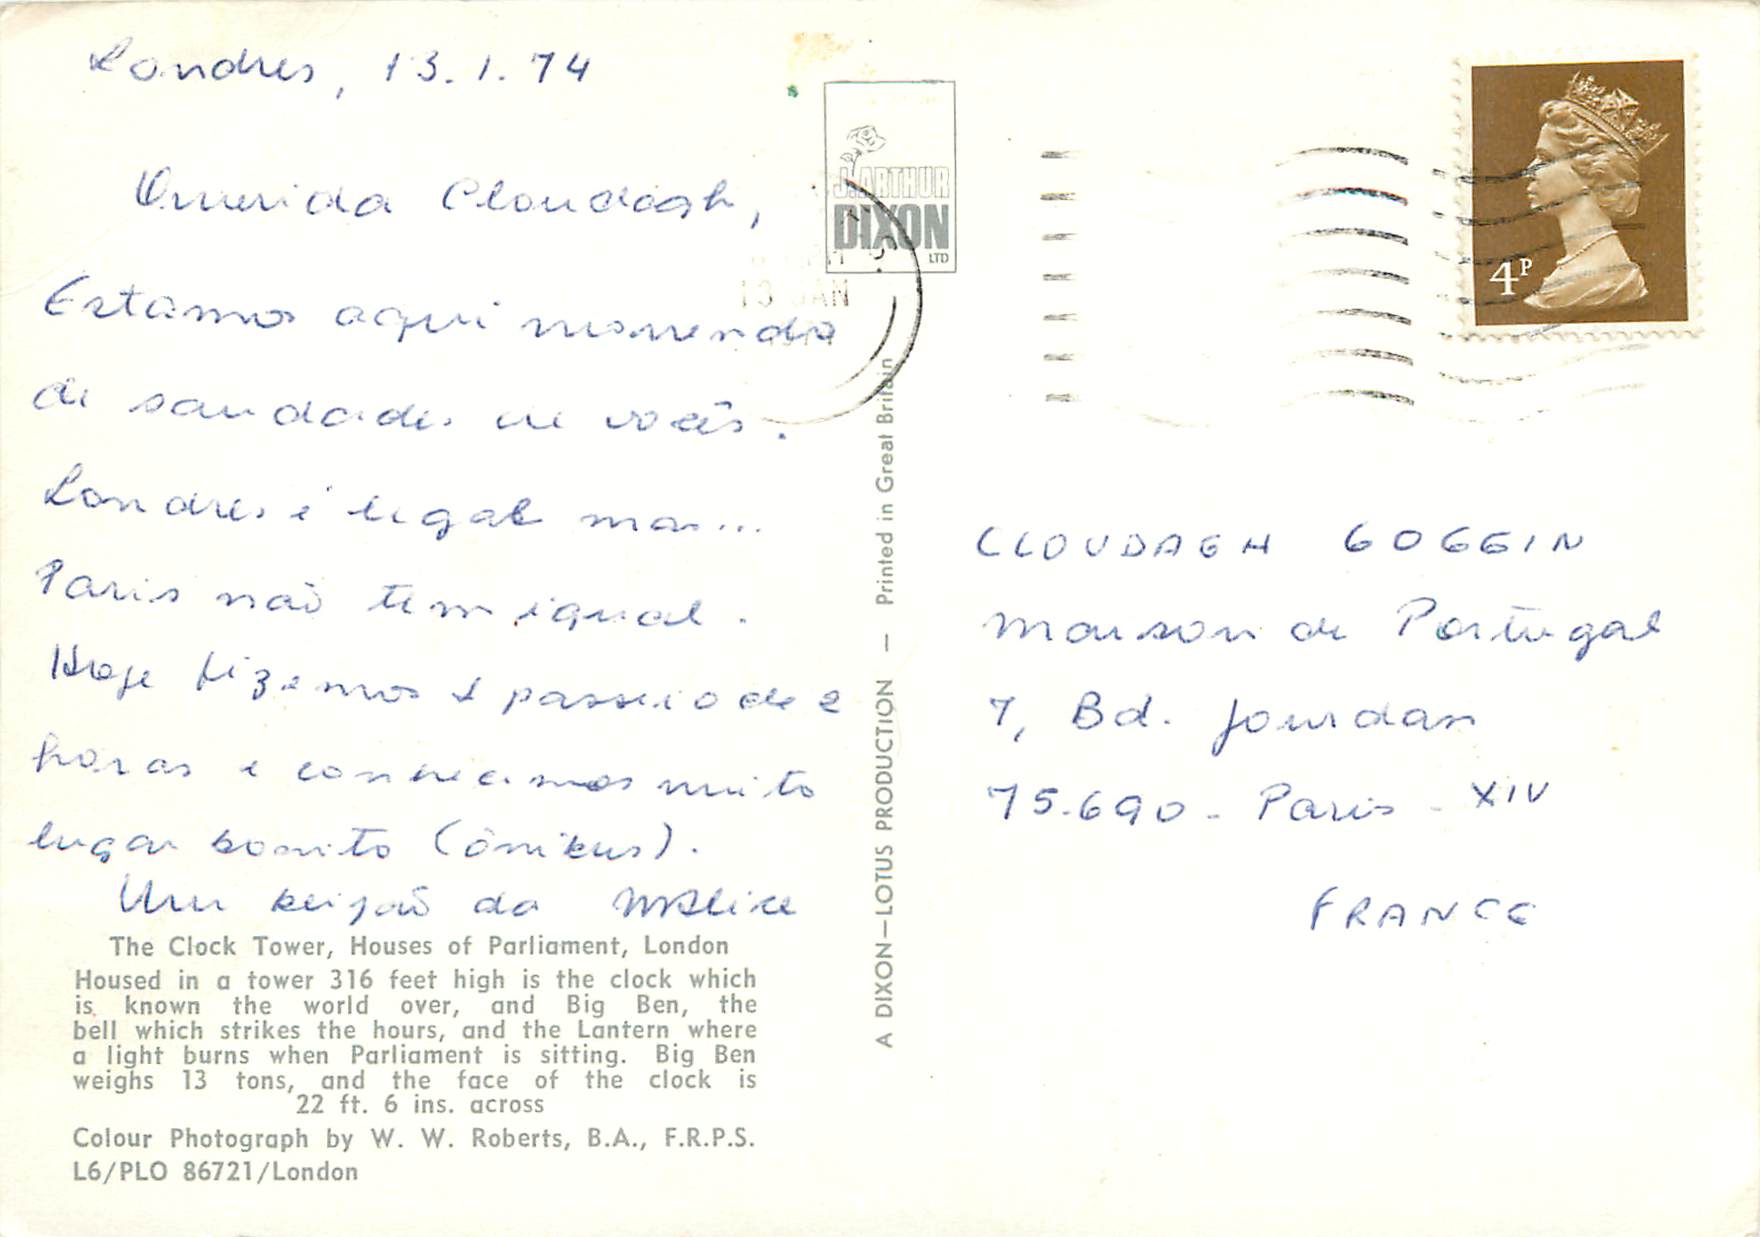 Londres, 13.1.74
Querida Cloudagh,
Estamos aqui morrendo
de saudades de vocês.
Londres é legal mas...
Paris não tem igual.
Hoje fizemos 1 passeio de 2
horas e conhecemos muito
lugar bonito (ônibus).
Um beijão da MAlice
The Clock Tower, Houses of Parliament, London
Housed in a tower 316 feet high is the clock which
is known the world over, and Big Ben, the
bell which strikes the hours, and the Lantern where
a light burns when Parliament is sitting. Big Ben
weighs 13 tons, and the face of the clock is
22 ft. 6 ins. across
Colour Photograph by W. W. Roberts, B.A., F.R.P.S.
L6/PLO 86721/London
J. ARTHUR
DIXON
LTD
13 JAN
A DIXON—LOTUS PRODUCTION — Printed in Great Britain
4P
CLOUDAGH GOGGIN
Maison de Portugal
7, Bd. Jourdan
75.690 - Paris - XIV
FRANCE